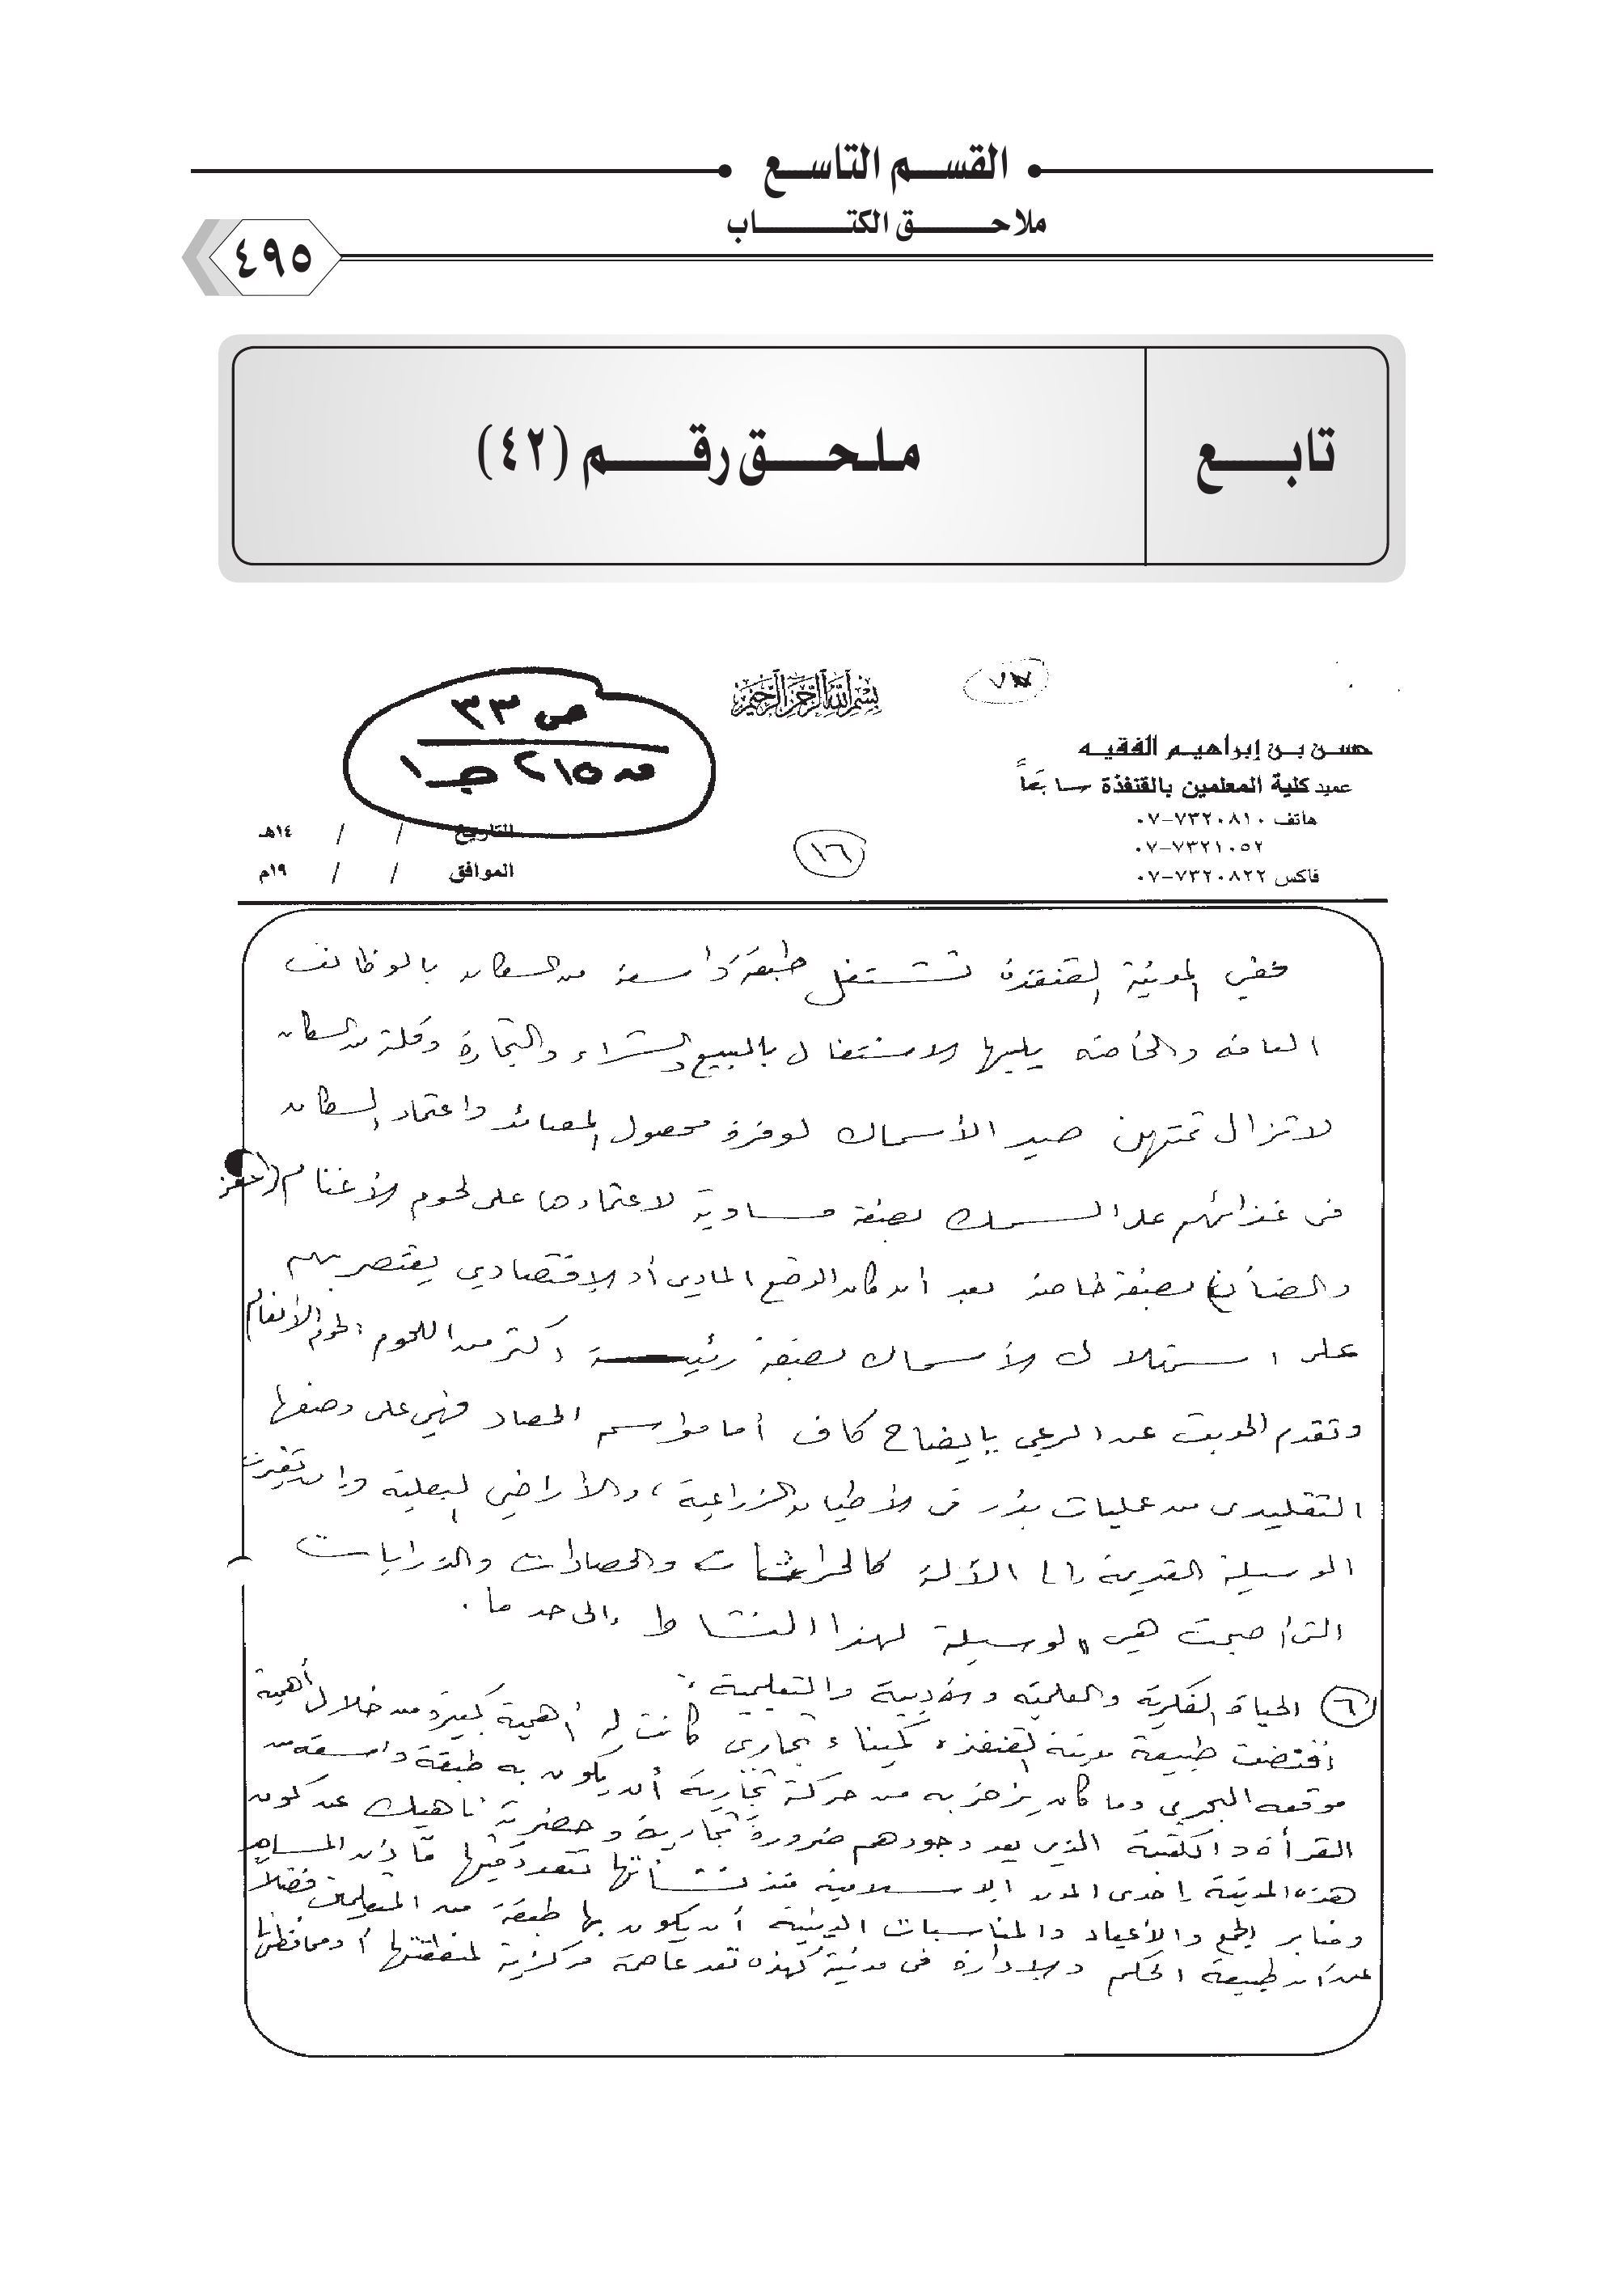 القسم التاسع
ملاحق الكتاب
٤٩٥
تابع
ملحق رقم (٤٢)
بسم الله الرحمن الرحيم
ص ٣٣
من ٢١٥ جـ ١
حسن بن إبراهيم الفقيه
عميد كلية المعلمين بالقنفذة سابقاً
هاتف ٧٣٢٠٨١٠-٠٧
٧٣٢١٠٥٢-٠٧
فاكس ٧٣٢٠٨٢٢-٠٧
١٦
التاريخ / / ١٤هـ
الموافق / / ١٩م
ففي المدينة القنفذة تشتغل طبقة واسعة من السكان بالوظائف
العامة والخاصة يليها الاشتغال بالبيع والشراء والتجارة وقلة من السكان
لا تزال تمتهن صيد الأسماك لوفرة محصول المصائد واعتماد السكان
في غذائهم على السمك بصفة مساوية لاعتمادها على لحوم الأغنام
والضأن) بصفة خاصة بعد أن كان الوضع المادي أو الاقتصادي يقتصر بهم
على استهلاك الأسماك بصفة رئيسة أكثر من اللحوم: لحوم الأنعام
وتقدم الحديث عن الرعي بإيضاح كاف أما مواسم الحصاد فهي على وصفها
التقليدي من عمليات بذر في الأطيان الزراعية، والأراضي البعلية وإن تغيرت
الوسيلة القديمة إلى الآلة كالحراثات والحصادات والذرايات
التي أصبحت هي الوسيلة لهذا النشاط إلى حد ما.
(٦) الحياة الفكرية والعلمية والأدبية والتعليمية:
اقتضت طبيعة مدينة القنفذة كميناء تجاري كانت له أهمية كبيرة من خلال أهمية
موقعه البحري وما كان يزخر به من حركة تجارية أن يكون به طبقة واسعة من
القرأة والكتبة الذي يعد وجودهم ضرورة تجارية وحضرية ناهيك عن كون
هذه المدينة إحدى المدن الإسلامية منذ نشأتها تتعدد فيها مآذن المساجد
ومنابر الجمع والأعياد والمناسبات الدينية أن يكون بها طبقة من المتعلمين فضلاً
عن أن طبيعة الحكم والإدارة في مدينة كهذه تعد عاصمة مركزية لمنطقتها أو محافظتها